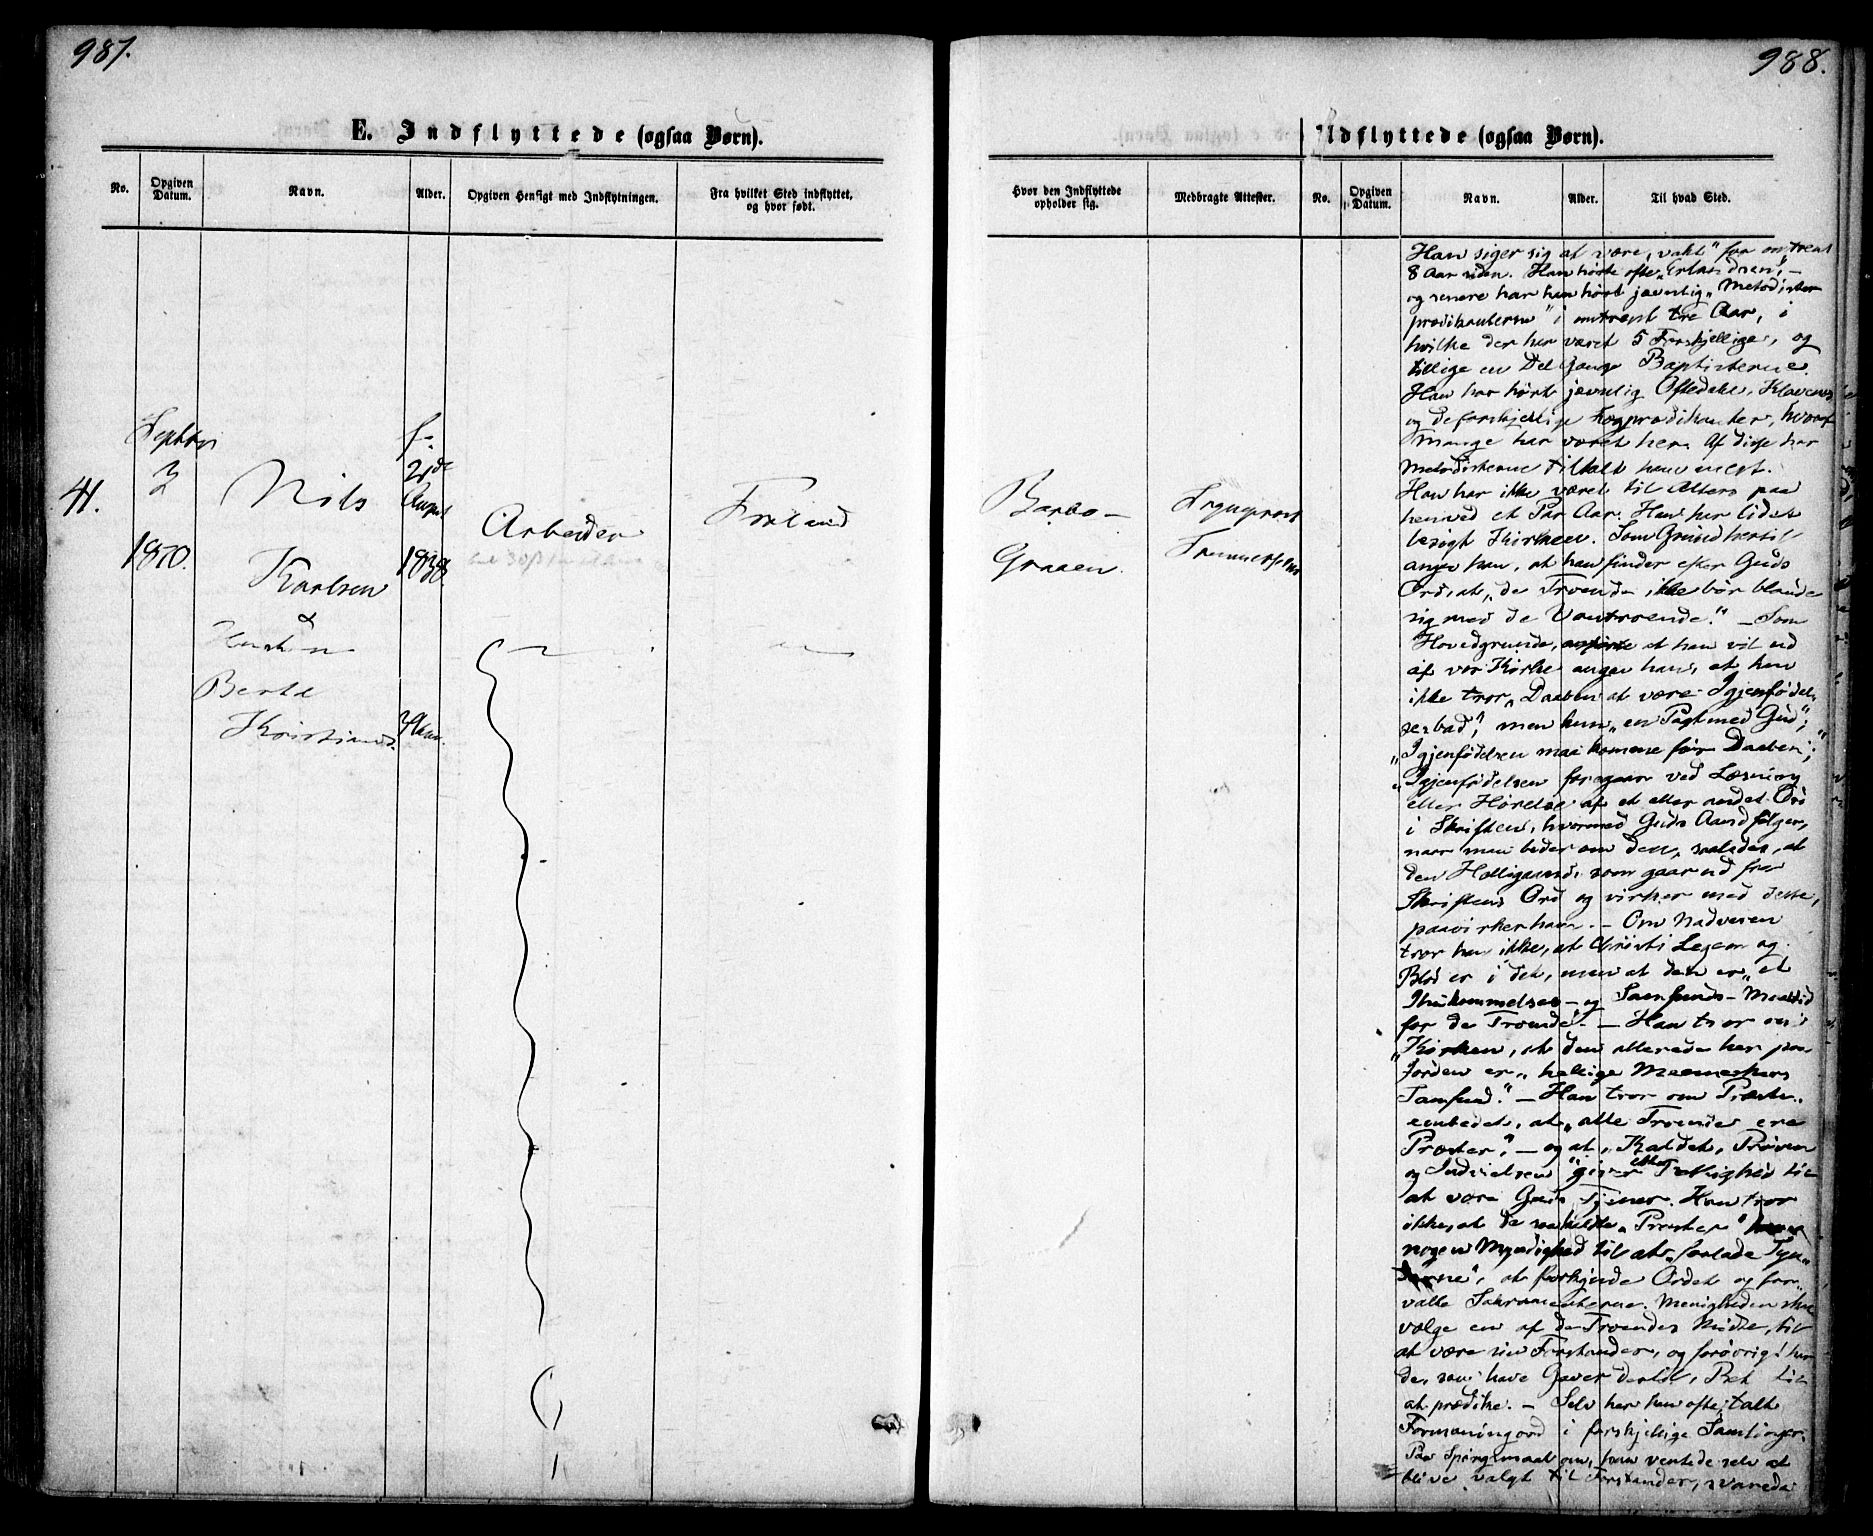 987.
988.
E. Indflyttede (ogsaa Børn).
Udflyttede (ogsaa Børn).
No.
Opgiven Datum.
Navn.
Alder.
Opgiven Hensigt med Indflytningen.
Fra hvilket Sted indflyttet, og hvor født.
Hvor den Indflyttede opholder sig.
Medbragte Attester.
No.
Opgiven Datum.
Navn.
Alder.
Til hvad Sted.
41.
Septbr
3
1870.
Nils
Karlsen
&
Hustru
Berte
Kristians
f.
21de
August
1838
39 Aar.
Arbeider
Froland
Barbo
Graaen
Sogneprest
Han siger sig at være „vakt" for omtrent
8 Aar siden. Han hørte ofte „Erlandsen", –
og senere har han hørt jævnlig „Metodister
prædikanterne" i omtrent tre Aar, i
hvilke der har været 5 Forskjellige, og
tillige en Del Gange Baptisterne.
Han har hørt jævnlig Oftedahl, Klavenes
og de forskjellige Fogprædikanter, hvoraf
mange har været her. Af disse har
Metodisterne tiltalt ham mest.
Han har ikke været til Alters paa
henved et Par Aar. Han har lidet
besøgt Kirken. Som Grund hertil
anger han, at han finder efter Guds
Ord, at „de Troende ikke bør blande
sig med de Vantroende." – Som
Hovedgrunde, at han vil ud
af vor Kirke anger han, at han
ikke tror „Daaben at være Igjenfødel-
sesbad", men kun „en Pagt med Gud";
„Igjenfødelsen maa komme før Daaben";
„Igjenfødelsen foregaar ved Læsning
eller Hørelse af et eller andet Ord
i Skriften, hvormed Guds Aand følger,
naar man beder om den, saaledes, at
den Helligaand, som gaar ud fra
Skriftens Ord og virker med dette,
paavirker ham. – Om Nadveren
tror han ikke, at Christi Legem og
Blod er i det, men at den er „et
Ihukommelses- og Samfunds-Maaltid
for de Troende". – Han tror om
„Kirken, at den allerede her paa
Jorden er „hellige Menneskers
Samfund." – Han tror om Præste-
embedet, at „alle Troende ere
Præster", – og at „Kaldet, Prøven
og Indvielsen" giver Rettighed til
at være Guds Tjener. Han tror
ikke, at de saakaldte „Præster" har
nogen Myndighed til at „forlade Syn-
derne", at forkynde Ordet og for-
valte Sakramenterne. Menigheden skal
vælge en af de Troendes Midte, til
at være sin Forstander, og forøvrigt har
de, som have Gaver dertil, Ret til
at prædike. – Selv har han ofte talt
Formaningsord i forskjellige Samlinger.
Paa Spørgsmaal om, han ventede selv at
blive valgt til Forstander, svarede